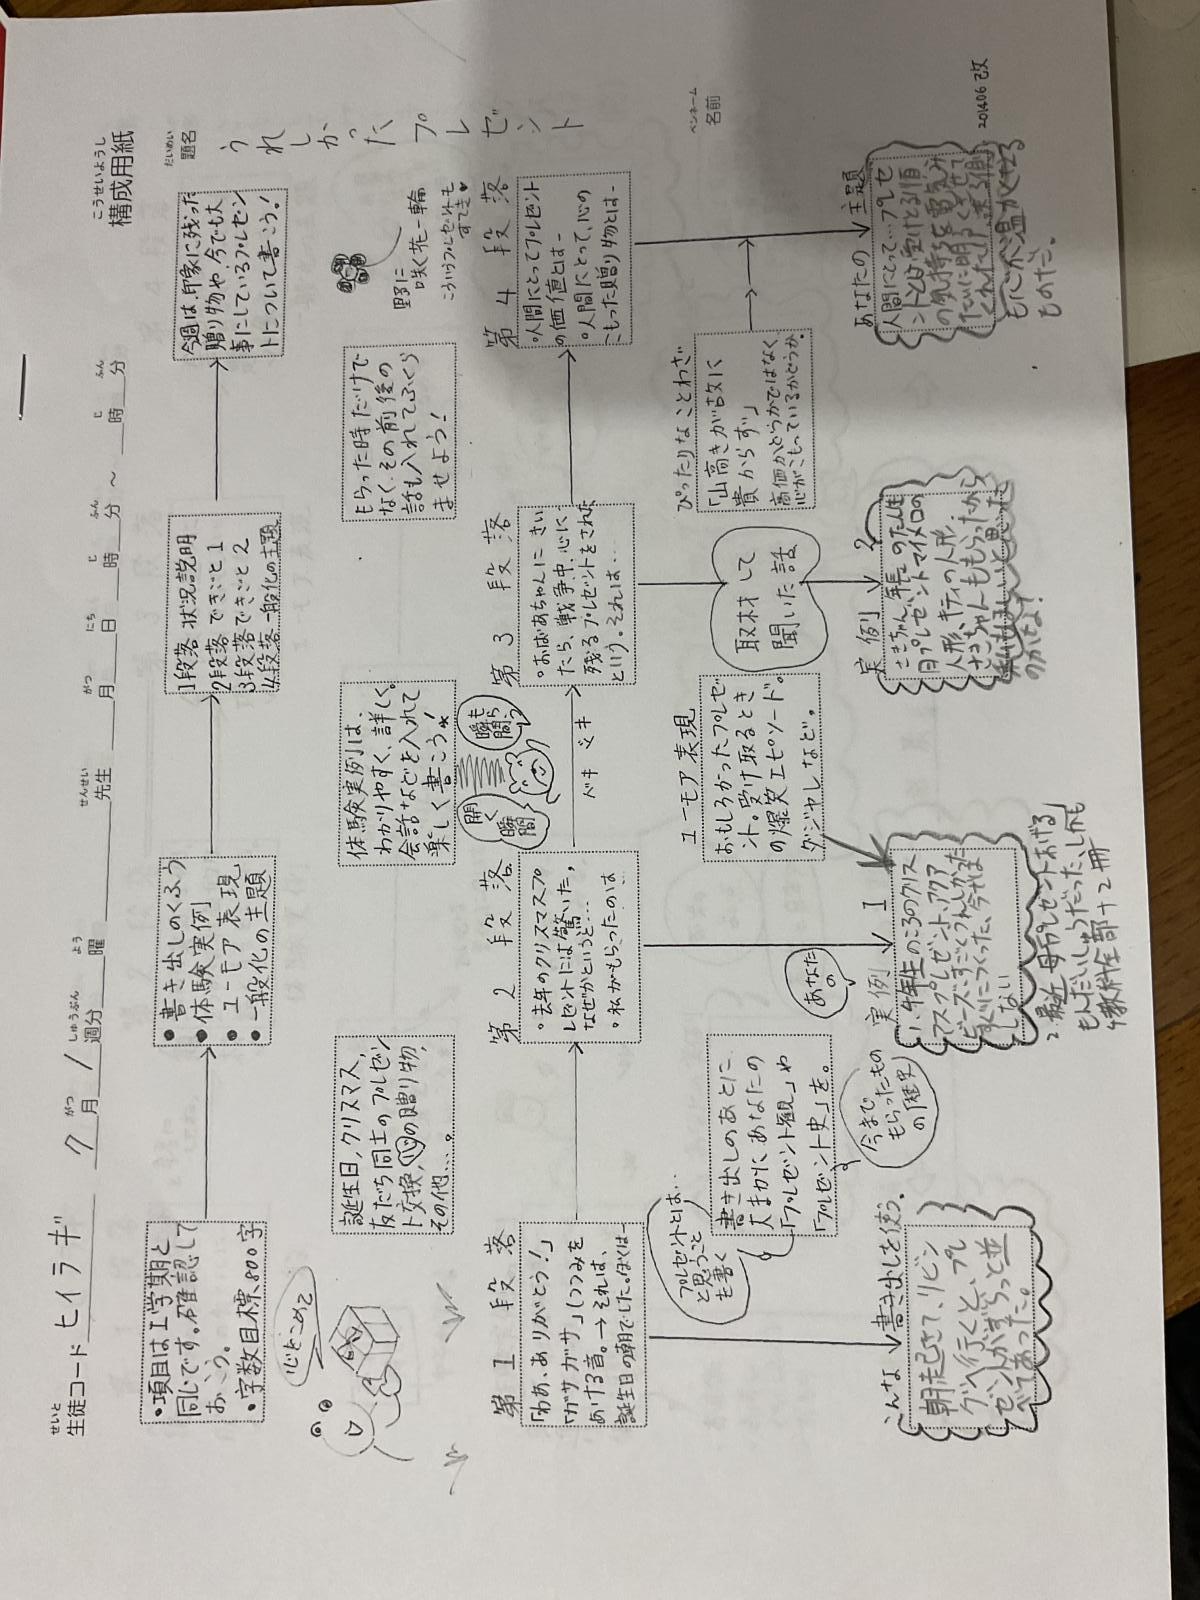 こうせいようし
構成用紙
せいと
生徒コード ヒイラギ
がつ しゅうぶん よう
7月 1 週分 曜
せんせい
先生
がつ にち じ ふん じ ふん
月 日 時 分 ～ 時 分
だいめい
題名
うれしかったプレゼント
ペンネーム
名前
・項目は1学期と
同じです。確認して
おこう。
・字数目標、800字
・書き出しのくふう
・体験実例
・ユーモア表現
・一般化の主題
1段落 状況説明
2段落 できごと1
3段落 できごと2
4段落 一般化の主題
今週は、印象に残った
贈り物や、今でも大
事にしているプレゼン
トについて書こう！
心をこめて
誕生日、クリスマス、
友だち同士のプレゼン
ト交換、心の贈り物、
その他…。
体験実例は、
わかりやすく、詳しく。
会話などを入れて
楽しく書こう！
開く瞬間
もらった時だけで
なく、その前後の
話も入れてふくら
ませよう！
野に
咲く花一輪
こういうプレゼントも
すてき♥
第1段落
「わあ、ありがとう！」
「ガサガサ」つつみを
あける音。→それは、
誕生日の朝でした。ぼくは…
第2段落
・去年のクリスマスプ
レゼントには驚いた。
なぜかというと…
・私がもらったのは…
ドキドキ
第3段落
・おばあちゃんにきい
たら、戦争中、心に
残るプレゼントをされた
という。それは…
第4段落
・人間にとってプレゼント
の価値とは…
・人間にとって、心の
こもった贈り物とは…
プレゼントとは…
と思うこと
も書く
書き出しのあとに
大まかにあなたの
「プレゼント観」や
「プレゼント史」を。
今まで
もらったもの
の「歴史」
ユーモア表現
おもしろかったプレゼ
ント。受け取るとき
の爆笑エピソード。
ダジャレなど。
取材して
聞いた話
ぴったりなことわざ
「山高きが故に
貴からず」
高価かどうかではなく、
心がこもっているかどうか。
こんな書き出しを使う。
朝起きて、リビン
グへ行くと、プレ
ゼントがずらっと並
べてあった。
あなたの
実例1
1、4年生のころのクリス
マスプレゼント、アクア
ビーズ、すごくうれしかった
すぐにつくった、今はま
しない
2、最近 母「プレゼントあげる」
もんだいしゅうだった、しかも
4教科全部+2冊
実例2
さきちゃん、年長のたん生
日プレゼントマイメロの
人形、キティの人形、
さきちゃんももらったから
のかせな？
あなたの主題
人間にとって…プレゼ
ントとは、受けとる側
の気持ちを
たいに明るくさせて
くれれば、送る側
も心が温かくなる
ものだ。
201406改